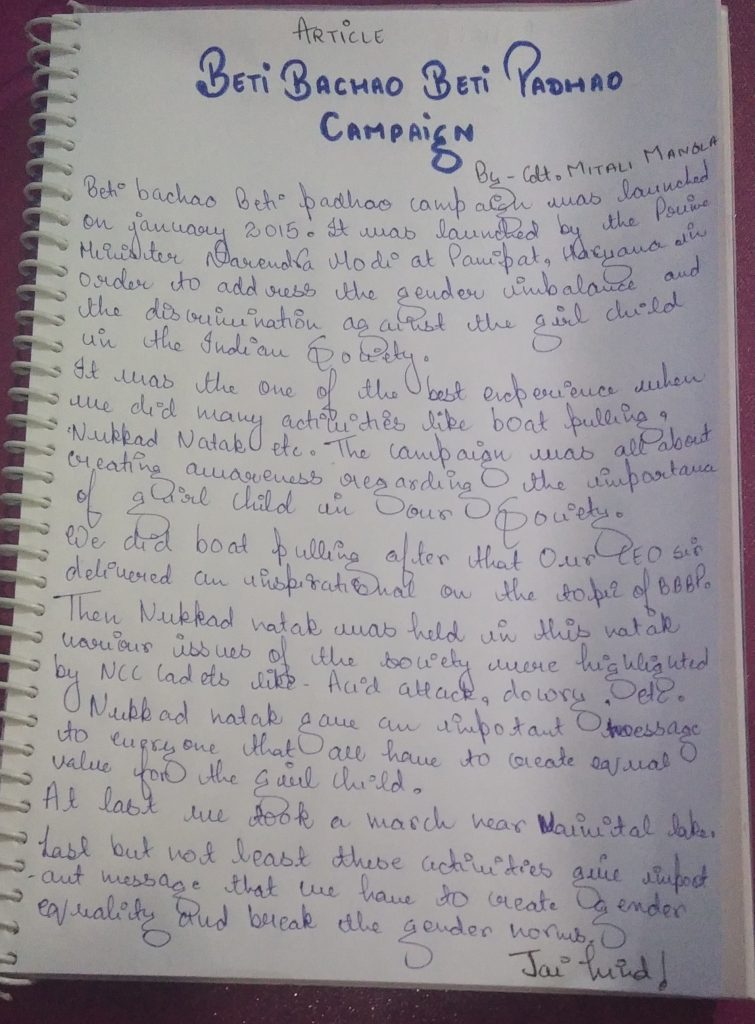 ARTICLE
BETI BACHAO BETI PADHAO
CAMPAIGN
By - Cdt. MITALI MANOLA
Beti bachao Beti padhao campaign was launched
on january 2015. It was launched by the Prime
Minister Narendra Modi at Panipat, Haryana in
order to address the gender imbalance and
the discrimination against the girl child
in the Indian Society.
It was the one of the best experience when
we did many activities like boat pulling,
Nukkad Natak etc. The campaign was all about
creating awareness regarding the importance
of girl child in our Society.
We did boat pulling after that Our CEO sir
delivered an inspirational on the topic of BBBP.
Then Nukkad natak was held in this natak
various issues of the society were highlighted
by NCC Cadets like - Acid attack, dowry, etc.
Nukkad natak gave an impotant message
to everyone that all have to create equal
value for the girl child.
At last we took a march near Nainital lake.
Last but not least these activities give import
-ant message that we have to create gender
equality and break the gender norms.
Jai hind!